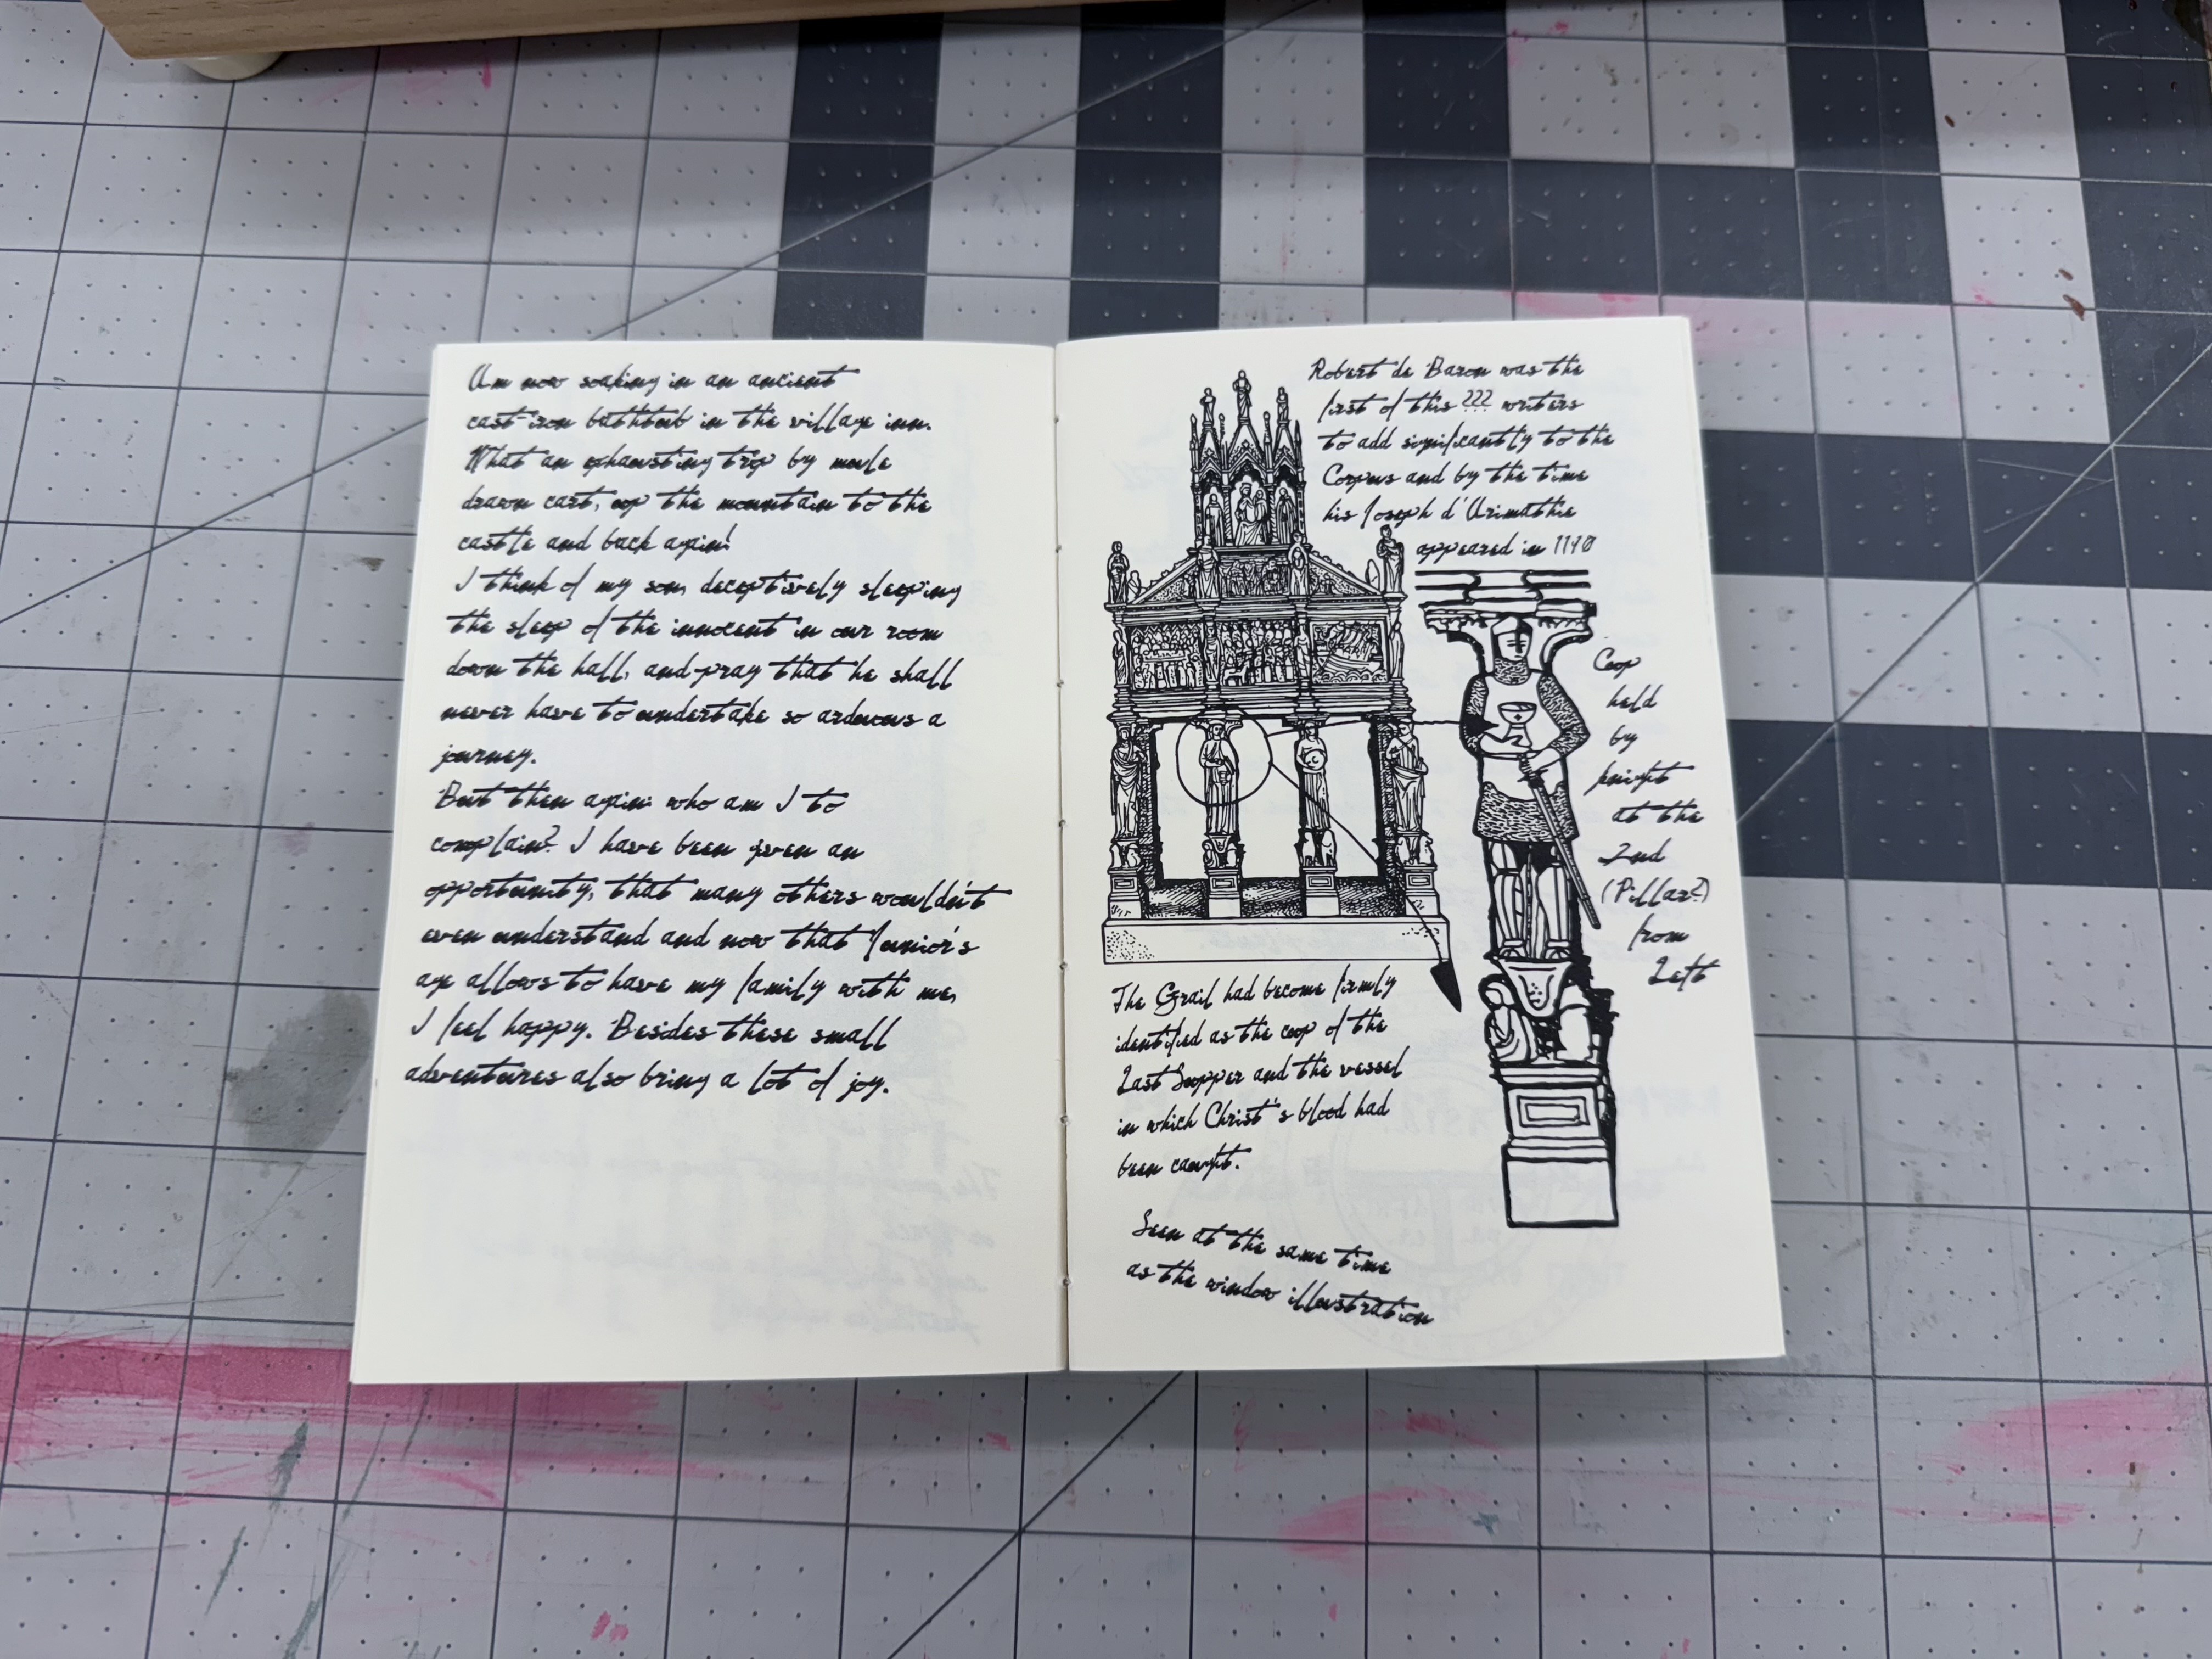 Am now soaking in an ancient
cast-iron bathtub in the village inn.
What an exhausting trip by mule
drawn cart, up the mountain to the
castle and back again!
I think of my son, deceptively sleeping
the sleep of the innocent in our room
down the hall, and pray that he shall
never have to undertake so arduous a
journey.
But then again who am I to
complain? I have been given an
opportunity, that many others wouldn't
even understand and now that Junior's
age allows to have my family with me,
I feel happy. Besides these small
adventures also bring a lot of joy.
Robert de Baron was the
first of this ??? writers
to add significantly to the
Corpus and by the time
his Joseph d'Arimathie
appeared in 1190
Cup
held
by
knight
at the
2nd
(Pillar?)
from
Left
The Grail had become firmly
identified as the cup of the
Last Supper and the vessel
in which Christ's blood had
been caught.
Seen at the same time
as the window illustration